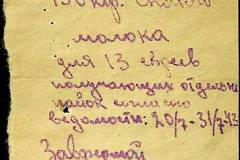 150 кгр.
молока
для 13 евреев
получающих отдельно
паёк согласно
ведомости: 20/7 - 31/7-43